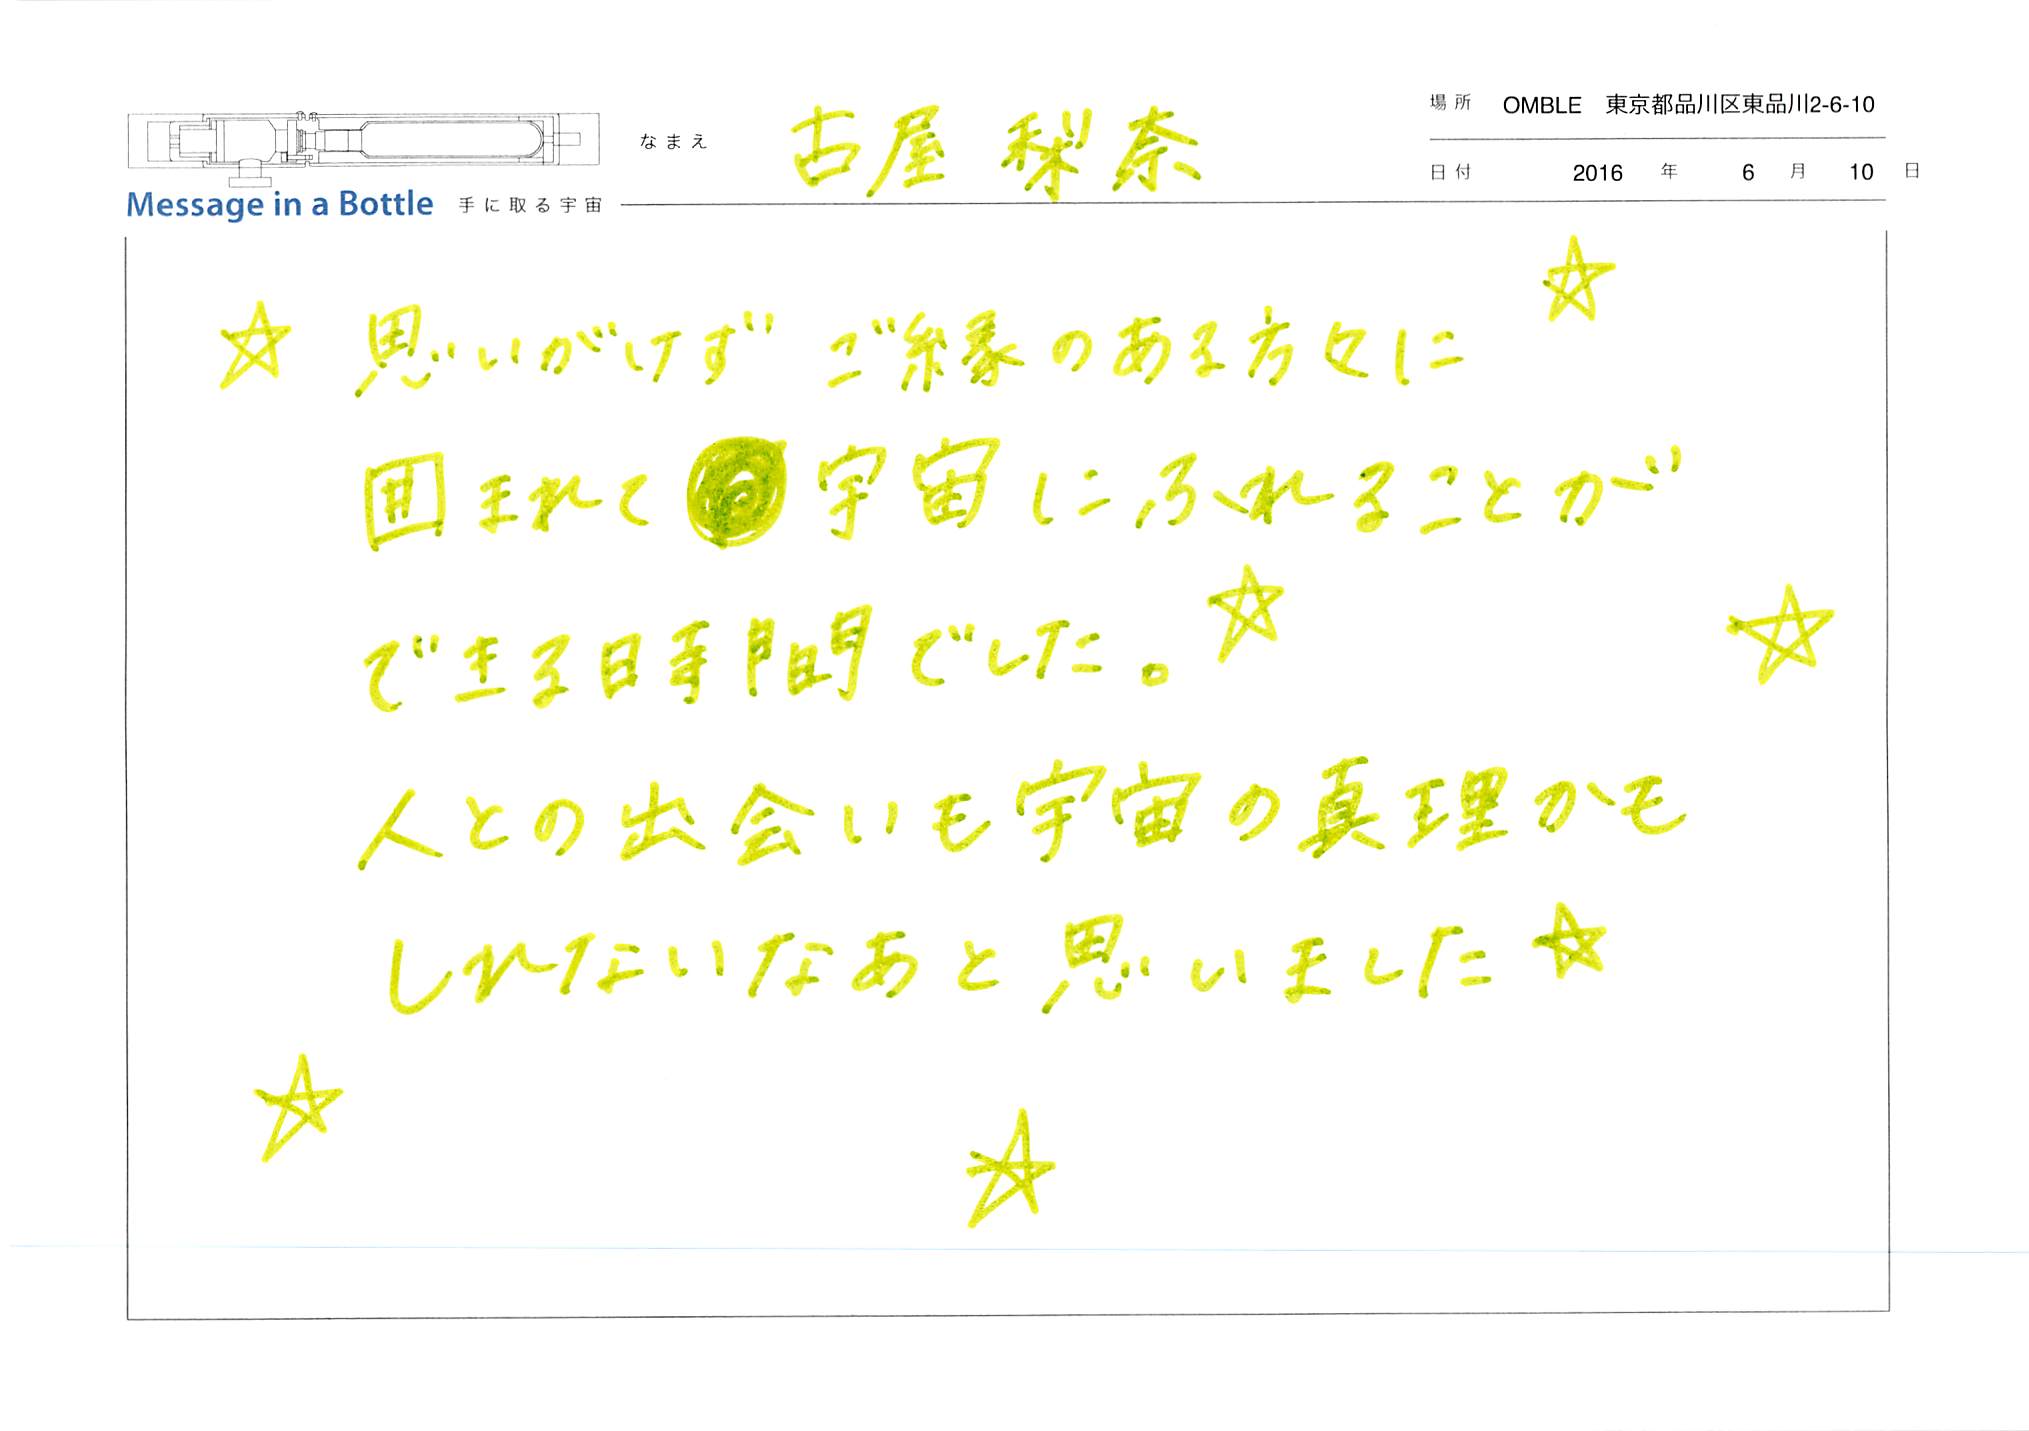 なまえ 古屋 梨奈
場所 OMBLE 東京都品川区東品川2-6-10
日付 2016 年 6 月 10 日
Message in a Bottle 手に取る宇宙
思いがけず ご縁のある方々に
囲まれて 宇宙にふれることが
できる時間でした。
人との出会いも宇宙の真理かも
しれないなあと思いました